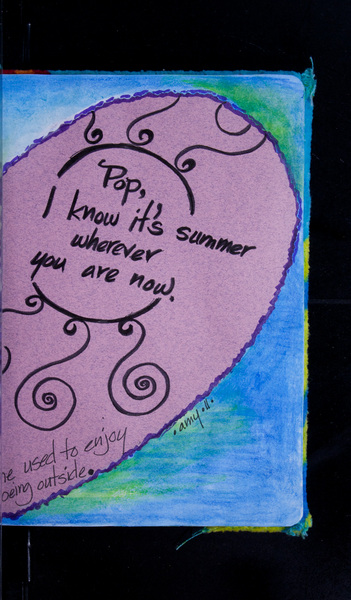 Pop,
I know it's summer
wherever
you are now.
.amy.ll.
used to enjoy
being outside.